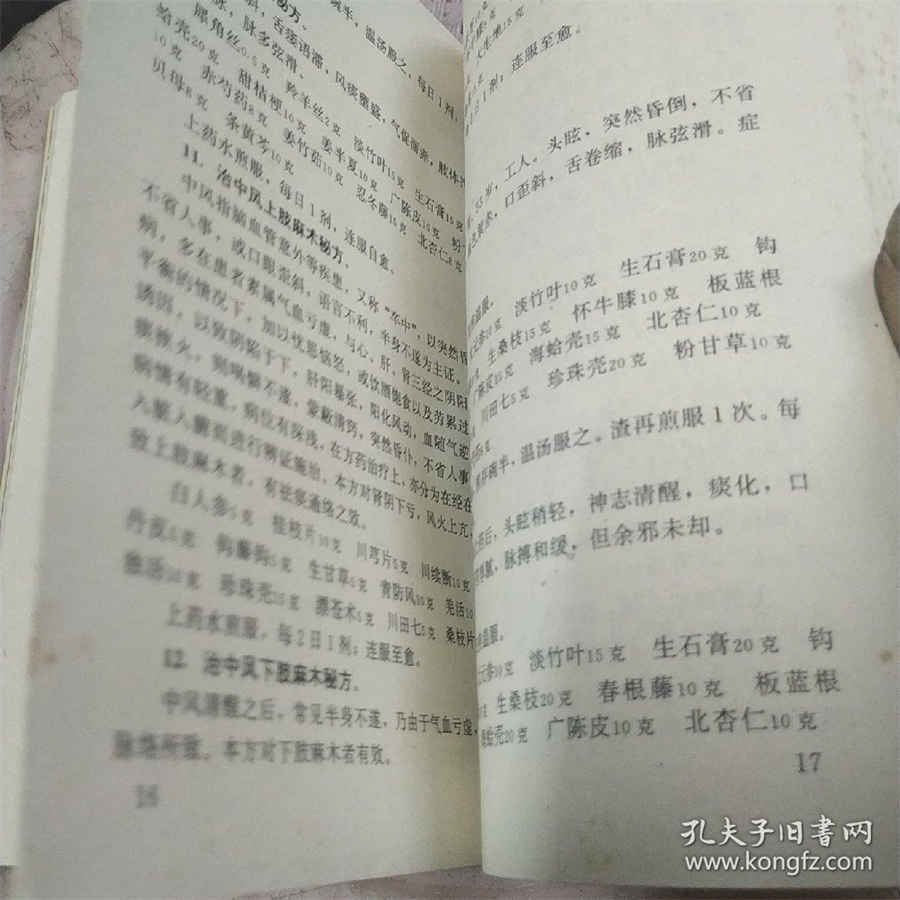 舌蹇语滞，风痰壅盛，气促
脉多弦滑。
犀角丝0.5克 羚羊丝2克 淡竹叶15克 生石膏15克
蛤壳20克 甜桔梗10克 姜半夏10克 广陈皮15克
10克 赤芍药8克 姜竹茹10克 忍冬藤15克 北杏仁8克
贝母8克 条黄芩10克
上药水煎服，每日1剂，连服自愈。
11. 治中风上肢麻木秘方。
中风指脑血管意外等疾患，又称“卒中”，以突然昏
不省人事，或口眼歪斜，语言不利，半身不遂为主证。
病，多在患者素属气血亏虚，与心、肝、肾三经之阴阳
平衡的情况下，加以忧思恼怒，或饮酒饱食以及劳累过
诱因，以致阴陷于下，肝阳暴张，阳化风动，血随气逆
痰挟火，则㖞僻不遂，蒙蔽清窍，突然昏仆，不省人事
病情有轻重，病位有深浅，在方药治疗上，亦分为在经在
入脏入腑而进行辨证施治，本方对肾阴下亏，风火上亢，
致上肢麻木者，有祛瘀通络之效。
白人参5克 桂枝片10克 川芎片5克 川续断10克
丹皮5克 钩藤钩5克 生甘草5克 青防风10克 羌活10
独活10克 珍珠壳15克 漂苍术5克 川田七5克 桑枝片
上药水煎服，每2日1剂；连服至愈。
12. 治中风下肢麻木秘方。
中风清醒之后，常见半身不遂，乃由于气血亏虚，
脉络所致。本方对下肢麻木者有效。
16
日1剂；连服至愈。
岁，工人。头眩，突然昏倒，不省
口歪斜，舌卷缩，脉弦滑。症
温服。
10克 淡竹叶10克 生石膏20克 钩
生桑枝10克 怀牛膝10克 板蓝根
陈皮15克 海蛤壳15克 北杏仁10克
川田七5克 珍珠壳20克 粉甘草10克
碗半，温汤服之。渣再煎服1次。每
后，头眩稍轻，神志清醒，痰化，口
腻，脉搏和缓，但余邪未却。
温服。
10克 淡竹叶15克 生石膏20克 钩
生桑枝20克 春根藤10克 板蓝根
蛤壳20克 广陈皮10克 北杏仁10克
17
孔夫子旧書网
www.kongfz.com